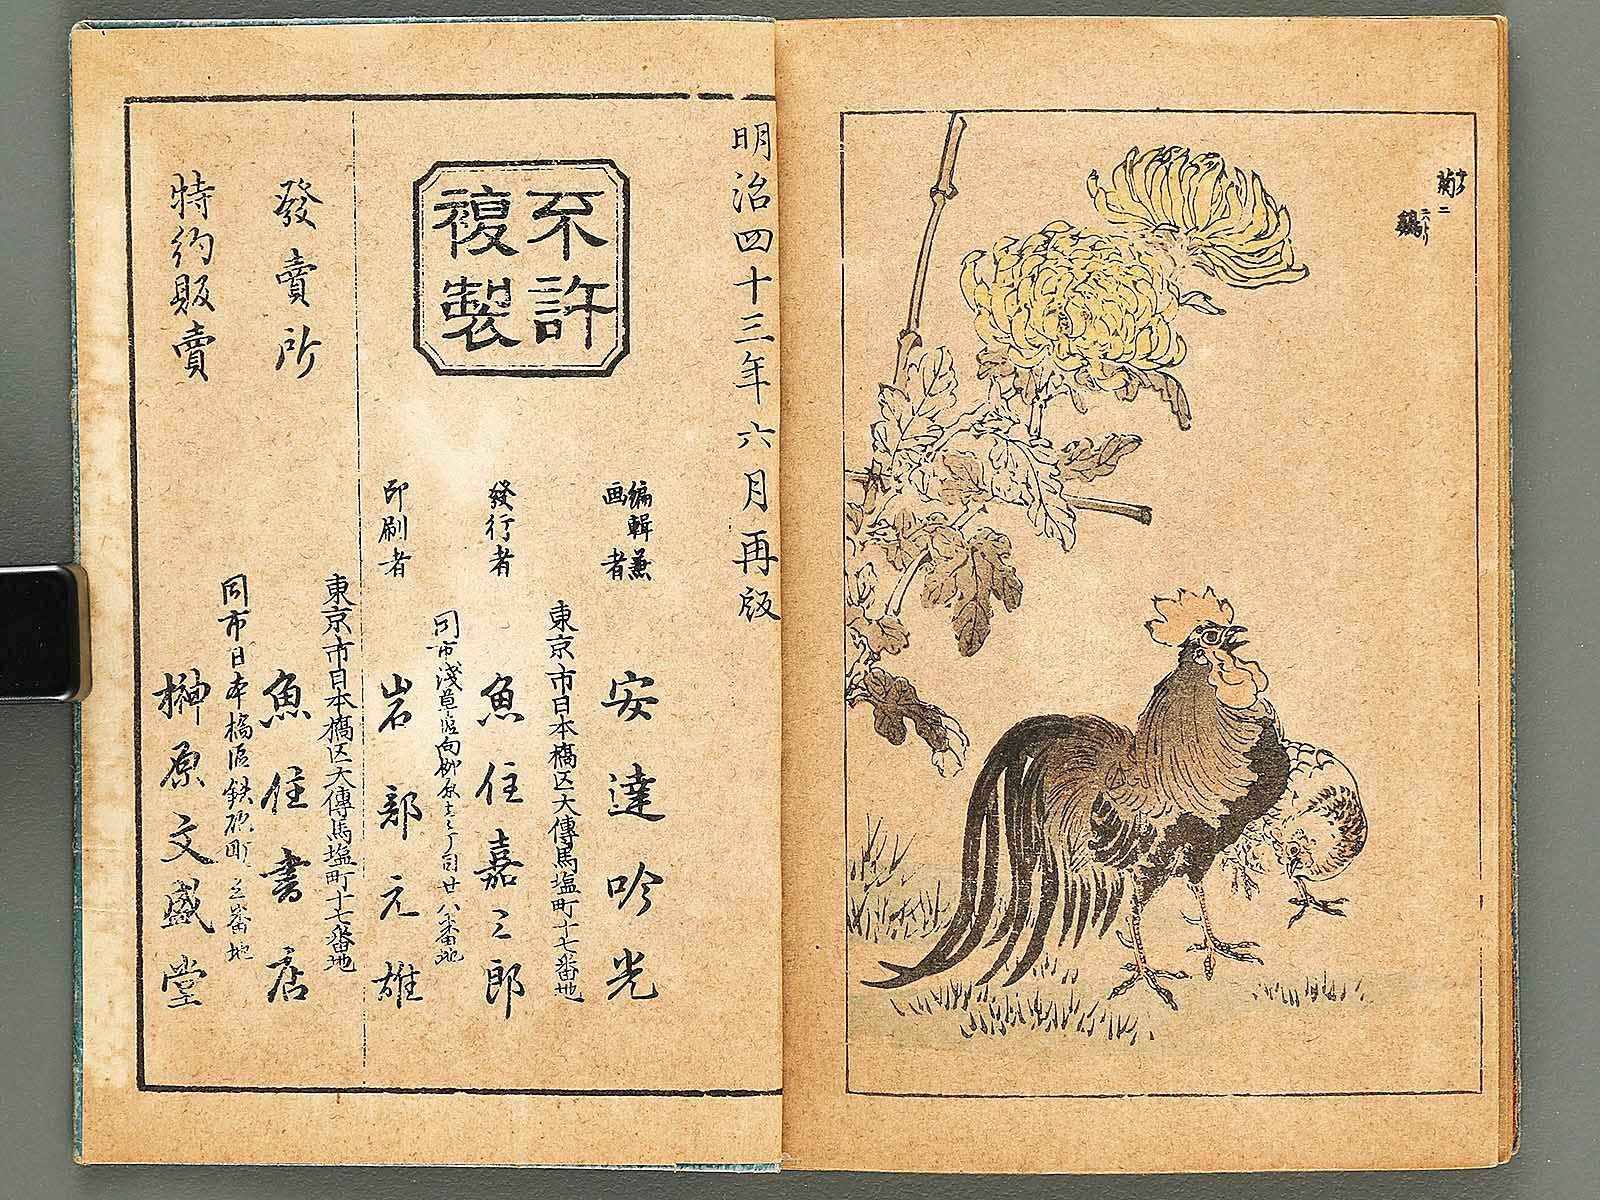 菊ニ
鶏
ニハトリ
明治四十三年六月再版
不許
複製
編輯兼
画者
東京市日本橋区大傳馬塩町十七番地
安達吟光
發行者
魚住嘉三郎
同市淺草區向柳原
廿八番地
印刷者
岩部元雄
東京市日本橋区大傳馬塩町十七番地
發賣所
魚住書店
同市日本橋區鉄砲町
番地
特約販賣
榊原文盛堂